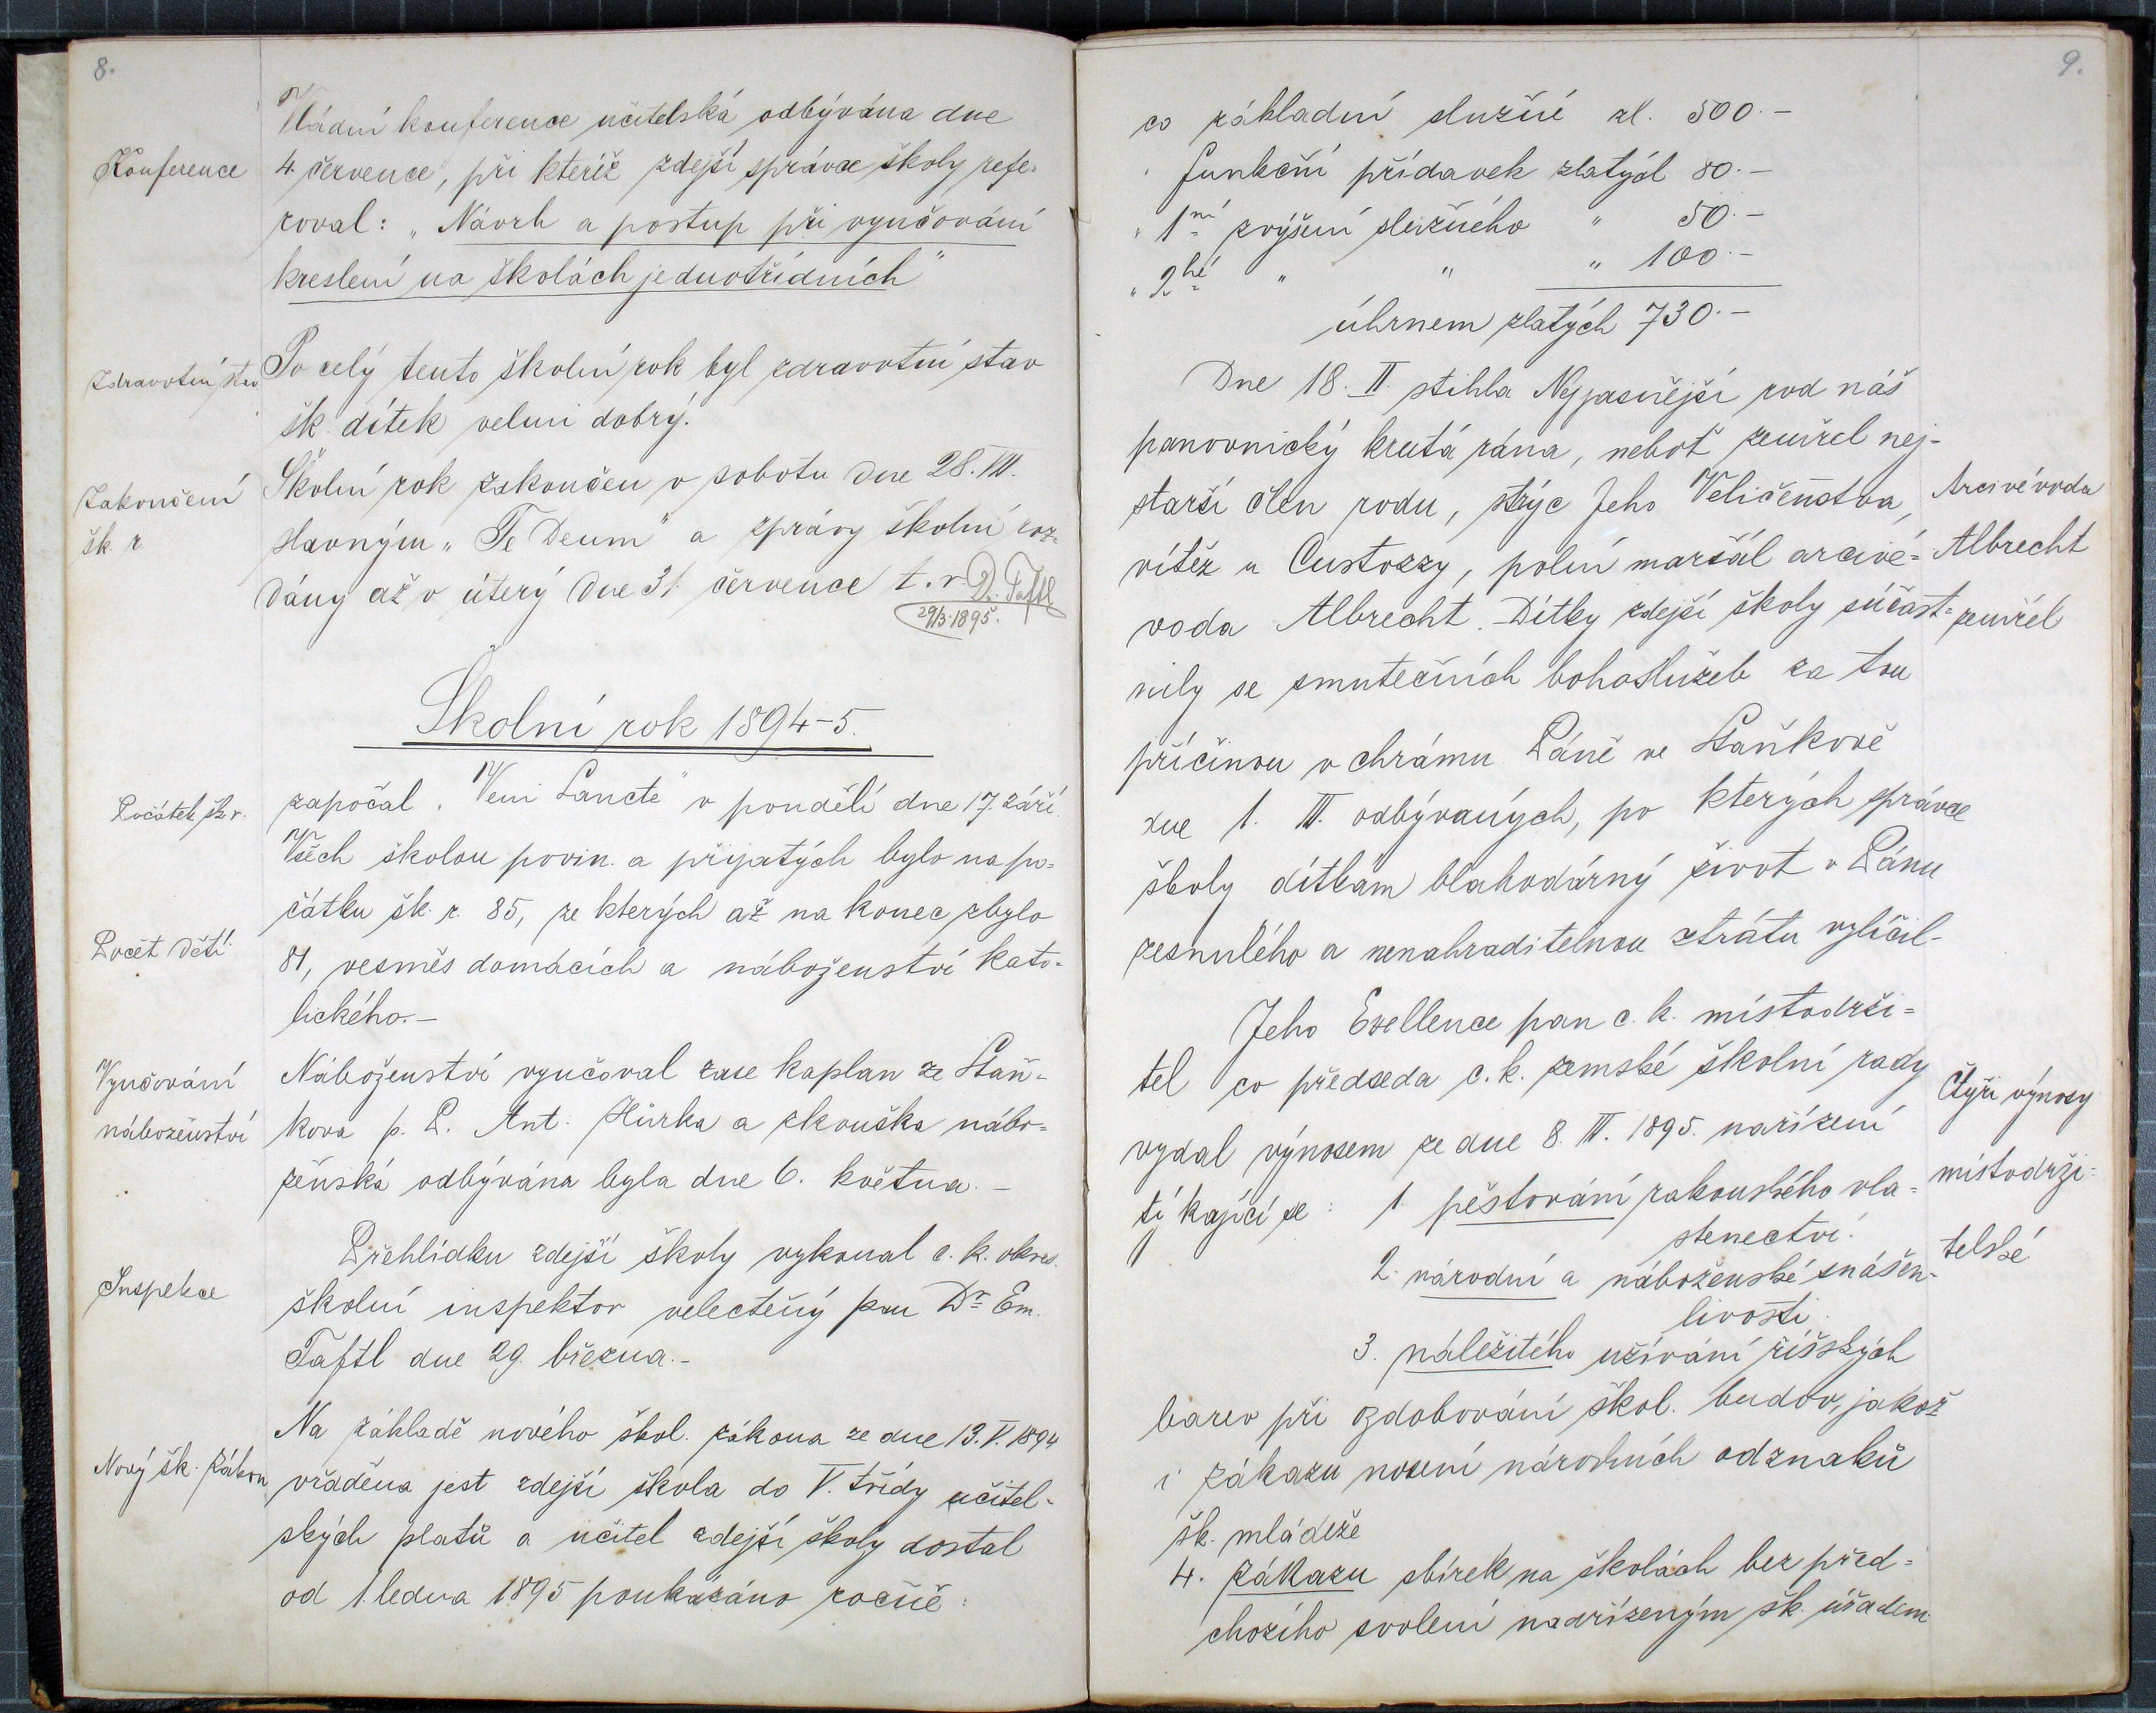 8.
Vládní konference učitelská odbývána dne
Konference
4. července, při kteréž zdejší správce školy refe-
roval: „Návrh a postup při vyučování
kreslení na školách jednotřídních"
Zdravotní stav
Po celý tento školní rok byl zdravotní stav
šk. dítek velmi dobrý.
Zakončení
šk. r.
Školní rok zakončen v sobotu dne 28. VII.
slavným „Te Deum" a zprávy školní roz-
dány až v úterý dne 31. července t. r. Dr. Taftl
29/3. 1895.
Školní rok 1894-5.
Počátek šk. r.
započal „Veni Sancte" v pondělí dne 17. září.
Všech školou povin. a přijatých bylo na po-
čátku šk. r. 85, ze kterých až na konec zbylo
Počet dětí
81, vesměs domácích a náboženství kato-
lického.-
Vyučování
náboženství
Náboženství vyučoval zase kaplan ze Staň-
kova p. P. Ant. Hůrka a zkouška nábo-
ženská odbývána byla dne 6. května.-
Inspekce
Přehlídku zdejší školy vykonal c. k. okres.
školní inspektor velectěný pan Dr Em.
Taftl dne 29. března.-
Nový šk. zákon
Na základě nového škol. zákona ze dne 13. V. 1894
vřaděna jest zdejší škola do V. třídy učitel-
ských platů a učitel zdejší školy dostal
od 1. ledna 1895 poukázáno ročně:
9.
co základní služné zl. 500.-
" funkční přídavek zlatých 80.-
" 1ní zvýšení služného " 50.-
" 2hé " " " 100.-
úhrnem zlatých 730.-
Dne 18. II. stihla Nejjasnější rod náš
panovnický krutá rána, neboť zemřel nej-
starší člen rodu, strýc Jeho Veličenstva,
vítěz u Custozzy, polní maršál arcivé-
voda Albrecht. Dítky zdejší školy súčast-
nily se smutečních bohoslužeb za tou
Arcivévoda
Albrecht
zemřel
příčinou v chrámu Páně ve Staňkově
dne 1. III. odbývaných, po kterých správce
školy dítkám blahodárný život v Pánu
zesnulého a nenahraditelnou ztrátu vylíčil-
Jeho Exellence pan c. k. místodrži-
tel co předseda c. k. zemské školní rady
vydal výnosem ze dne 8. III. 1895. nařízení
týkající se: 1. pěstování rakouského vla-
stenectví.
2. národní a náboženské snášen-
livosti.
Čtyři výnosy
místodrži-
telské
3. náležitého užívání říšských
barev při ozdobování škol. budov, jakož
i zákazu nosení národních odznaků
šk. mládeže
4. zákazu sbírek na školách bez před-
chozího svolení nadřízeným šk. úřadem